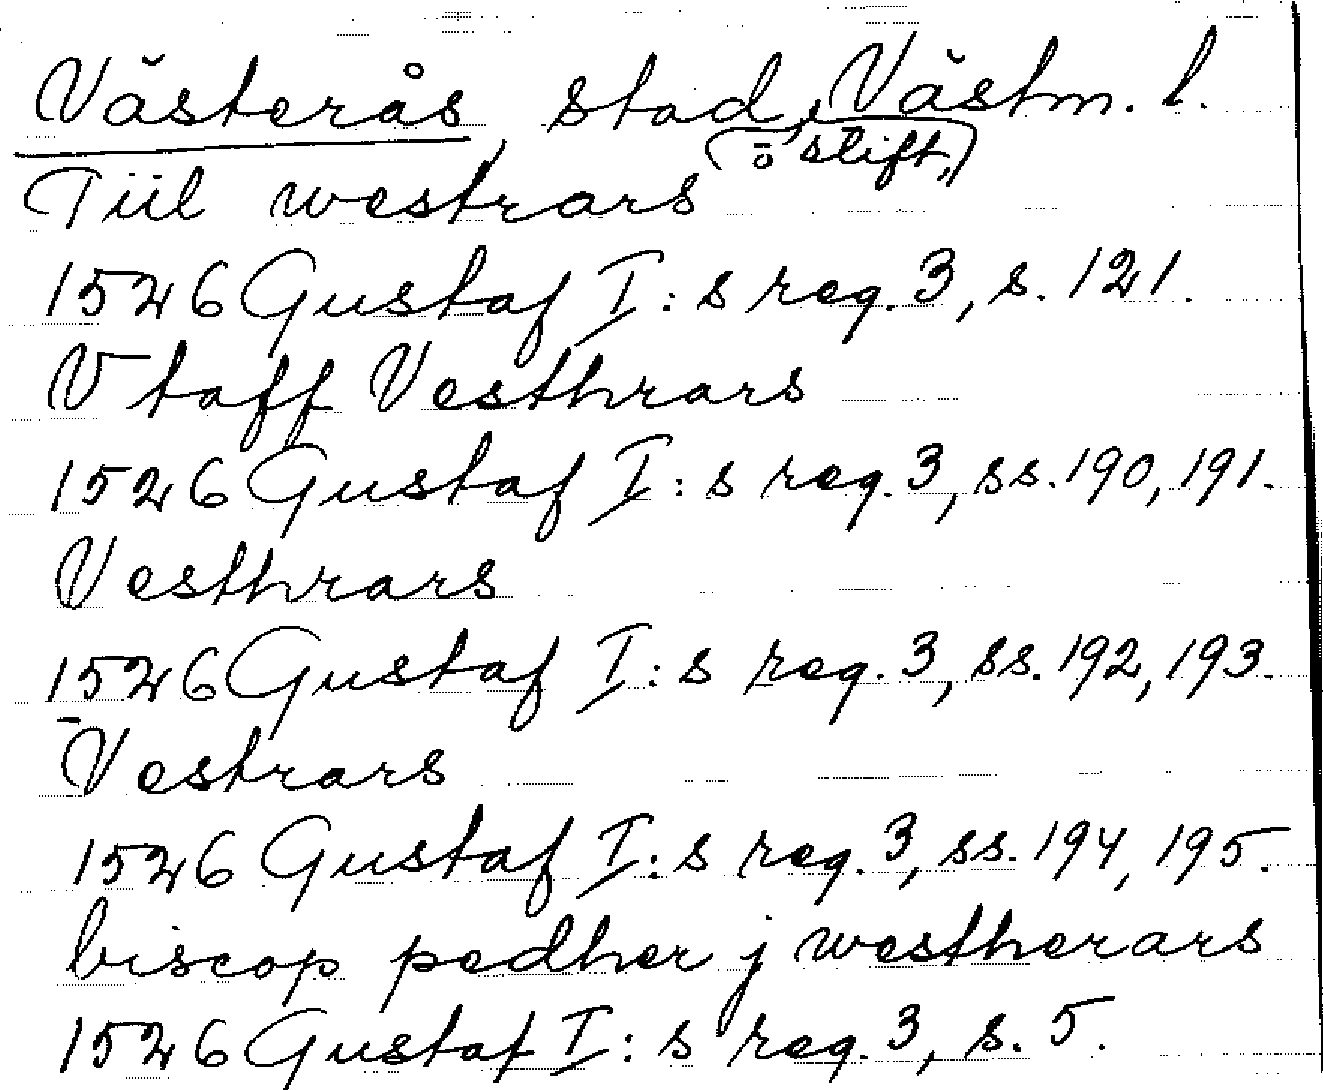 Västerås, stad, Västm. l.
(ö stift,)
Tiil westrars
1526 Gustaf I:s reg. 3, s. 121.
Vtaff Vesthrars
1526 Gustaf I:s reg. 3, ss. 190, 191.
Vesthrars
1526 Gustaf I:s reg. 3, ss. 192, 193.
Vestrars
1526 Gustaf I:s reg. 3, ss. 194, 195.
biscop pedher j westherars
1526 Gustaf I:s reg. 3, s. 5.